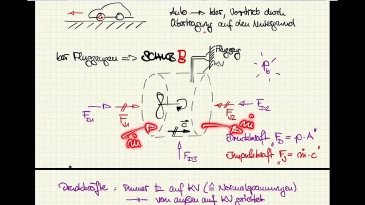 Auto → klar, Vortrieb durch
Übertragung auf den Untergrund
bei Flugzeugen => SCHUB !
Flugzeug
KV
p₀
F_D1
F_J1
F_J2
F_D2
ṁ
c
ṁ
F_D3
Druckkraft F_D = p·A
Impulskraft F_J = ṁ·c
Druckkräfte : immer ⊥ auf KV (≙ Normalspannungen)
→ von außen auf KV gerichtet